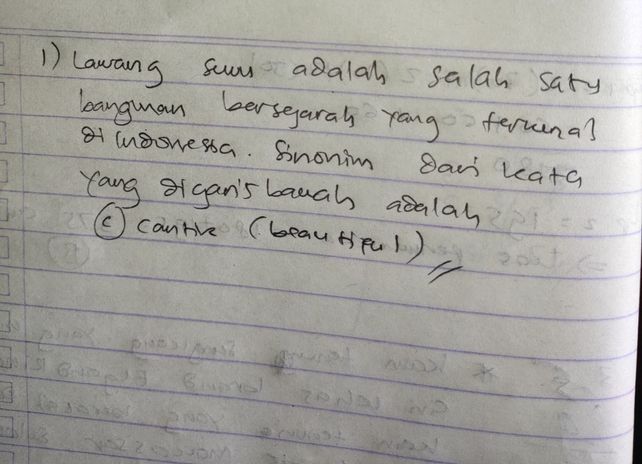 1) Lawang sewu adalah salah satu
bangunan bersejarah yang terkenal
di indonesia. Sinonim dari kata
yang digaris bawah adalah
(c) cantik (beautiful)